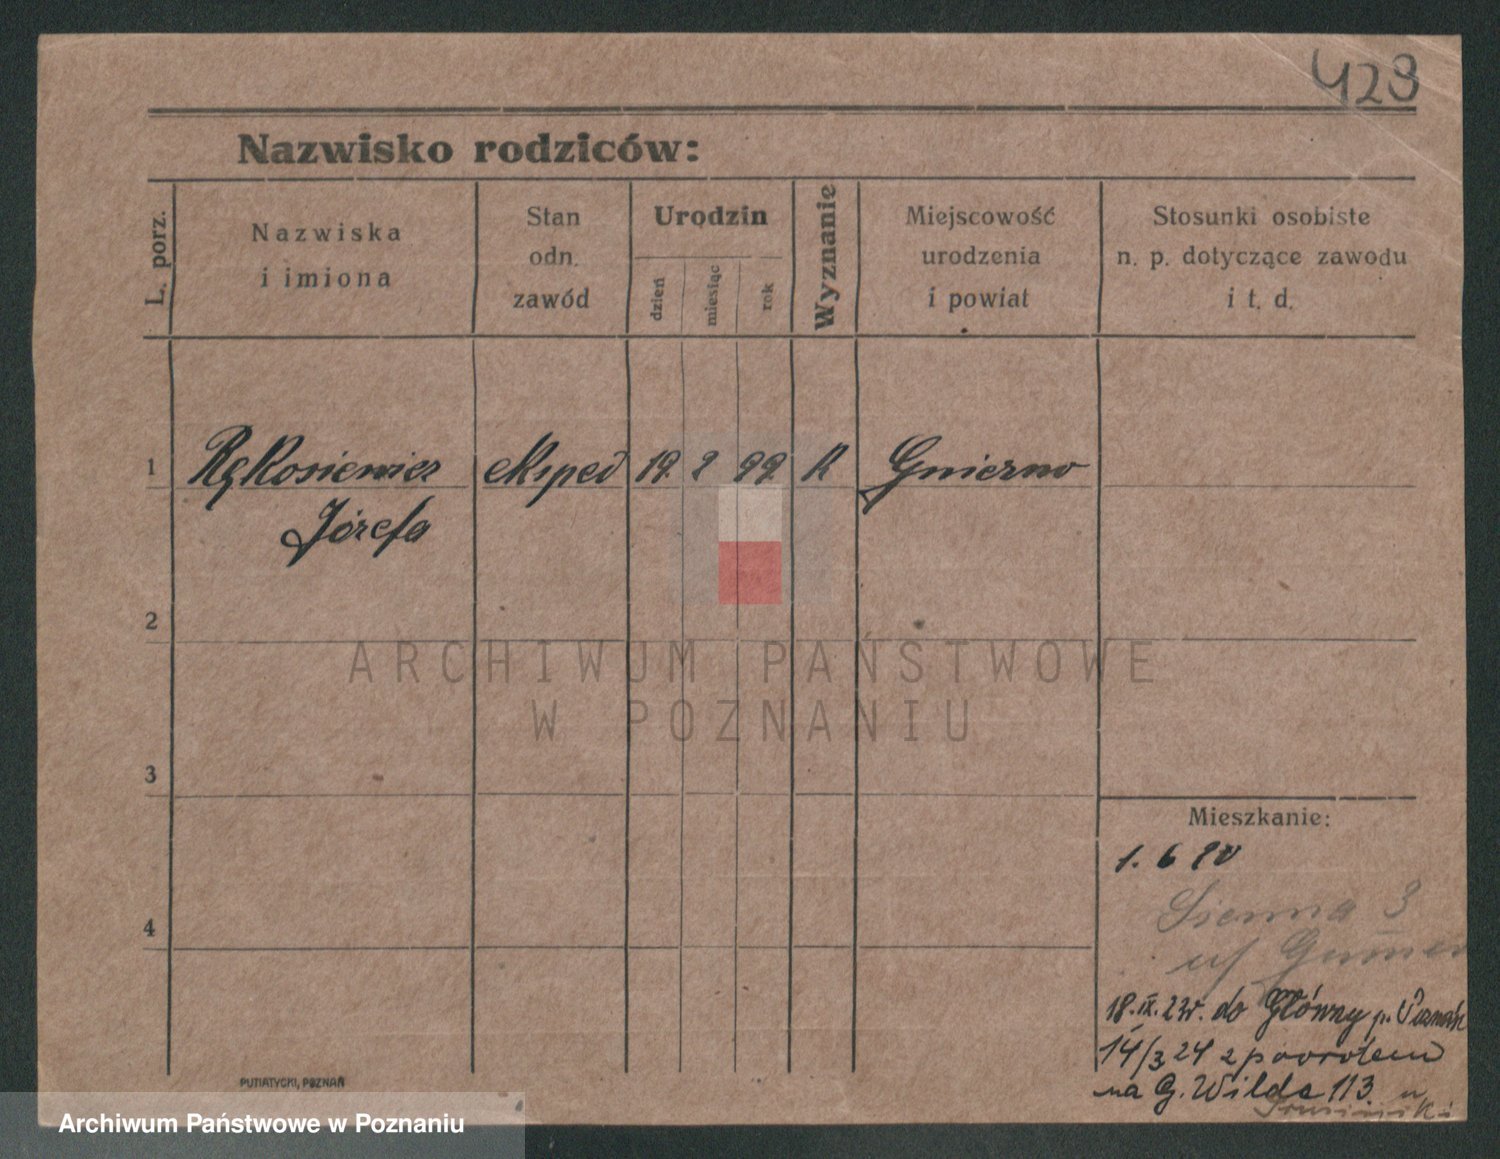 423
Nazwisko rodziców:
L. porz.
Nazwiska
i imiona
Stan
odn.
zawód
Urodzin
dzień
miesiąc
rok
Wyznanie
Miejscowość
urodzenia
i powiat
Stosunki osobiste
n. p. dotyczące zawodu
i t. d.
1
Rękosiewicz eksped 19. 2 99. K Gniezno
Józefa
2
ARCHIWUM PAŃSTWOWE
W POZNANIU
3
4
Mieszkanie:
1. 6
Sienna 3
18. IX. 23r. do Główny p. Poznań
14/3 24 z powrotem
na G. Wilda 113. u
PUTIATYCKI, POZNAŃ
Archiwum Państwowe w Poznaniu